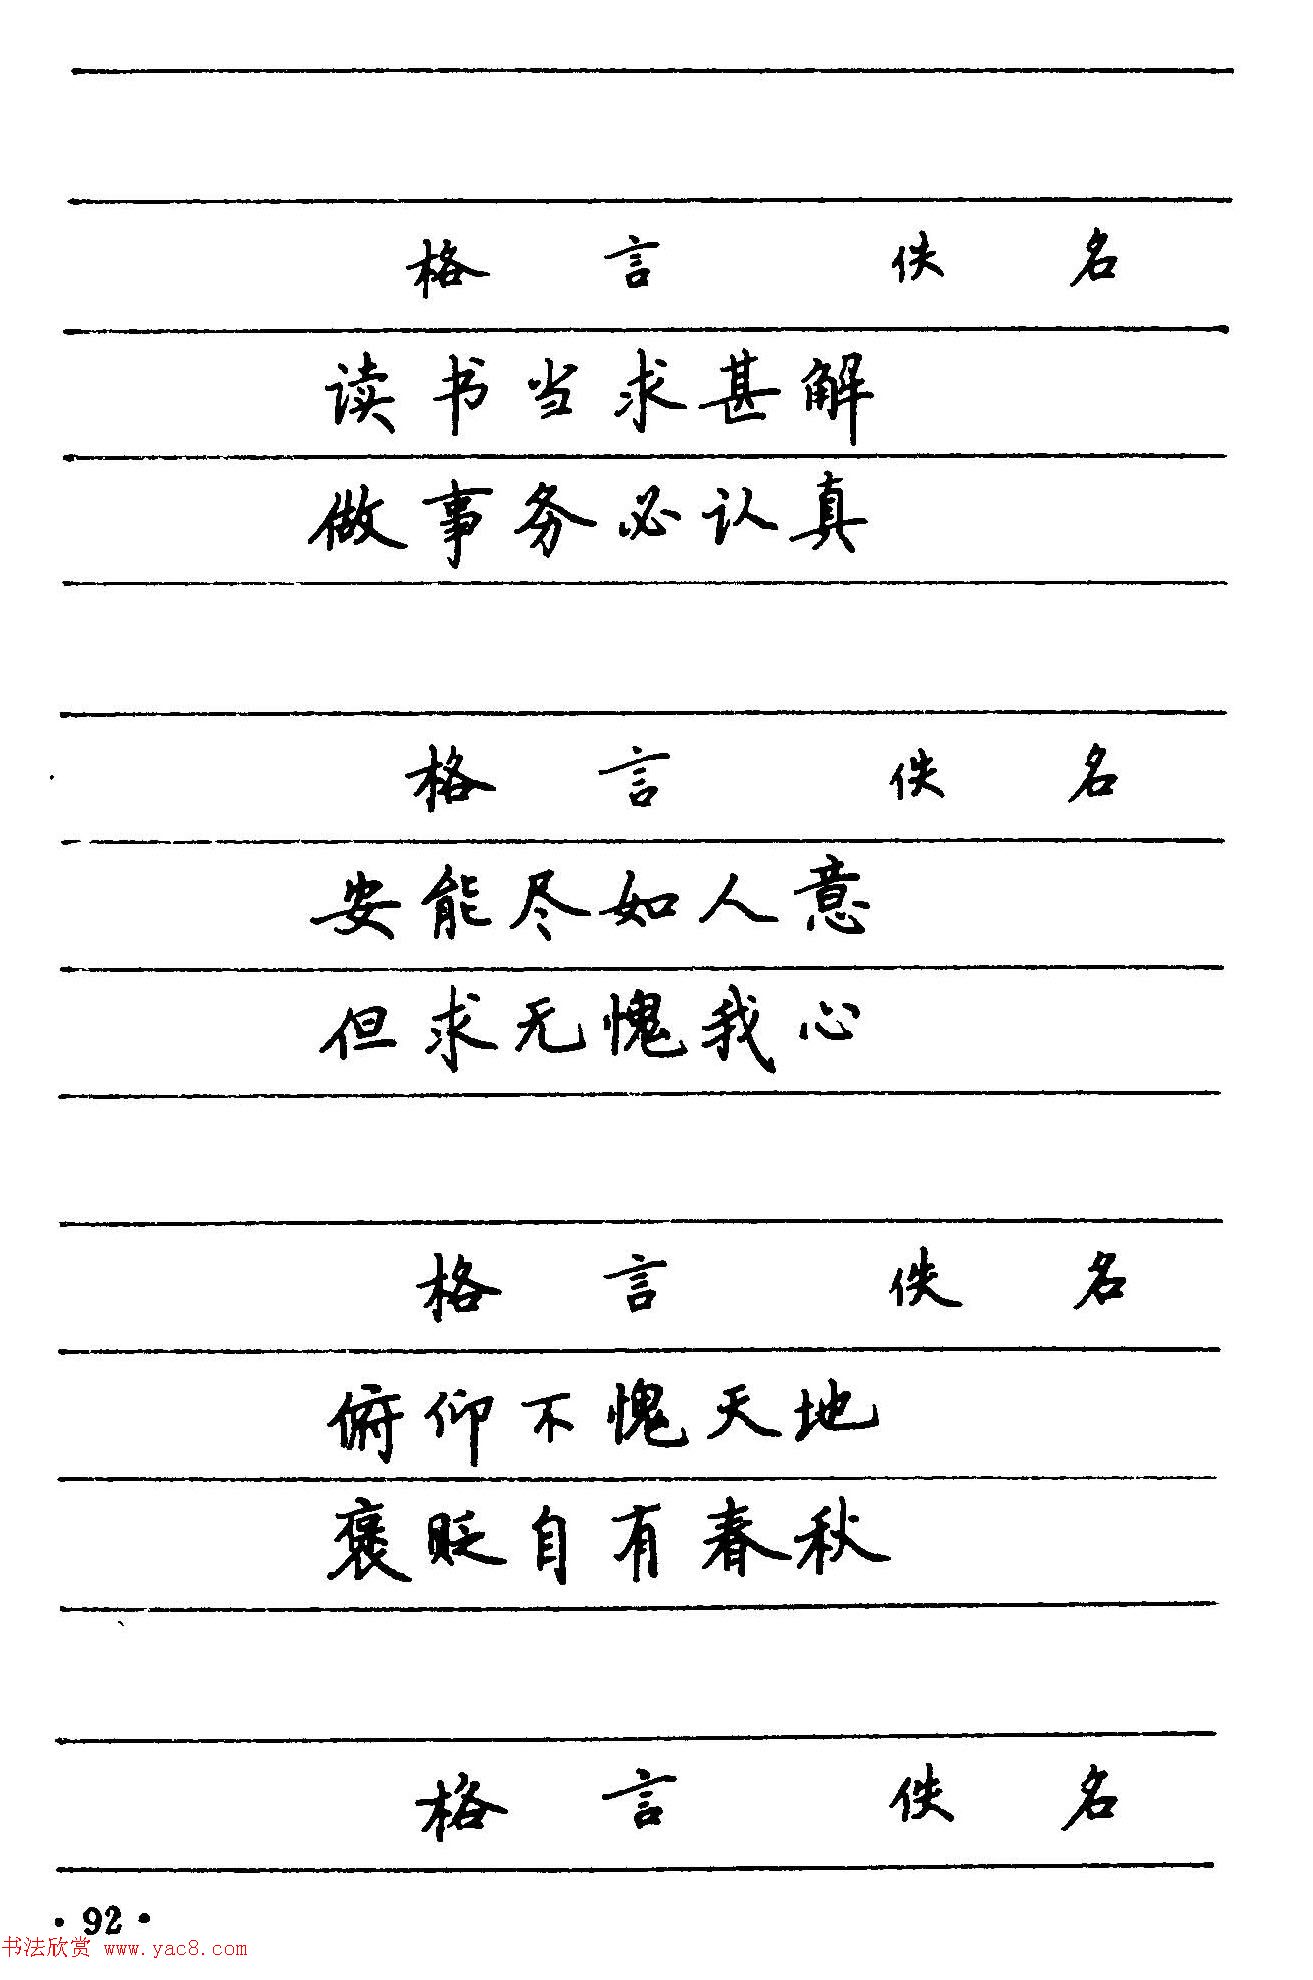 格言 佚名
读书当求甚解
做事务必认真
格言 佚名
安能尽如人意
但求无愧我心
格言 佚名
俯仰不愧天地
褒贬自有春秋
格言 佚名
·92·
书法欣赏 www.yac8.com